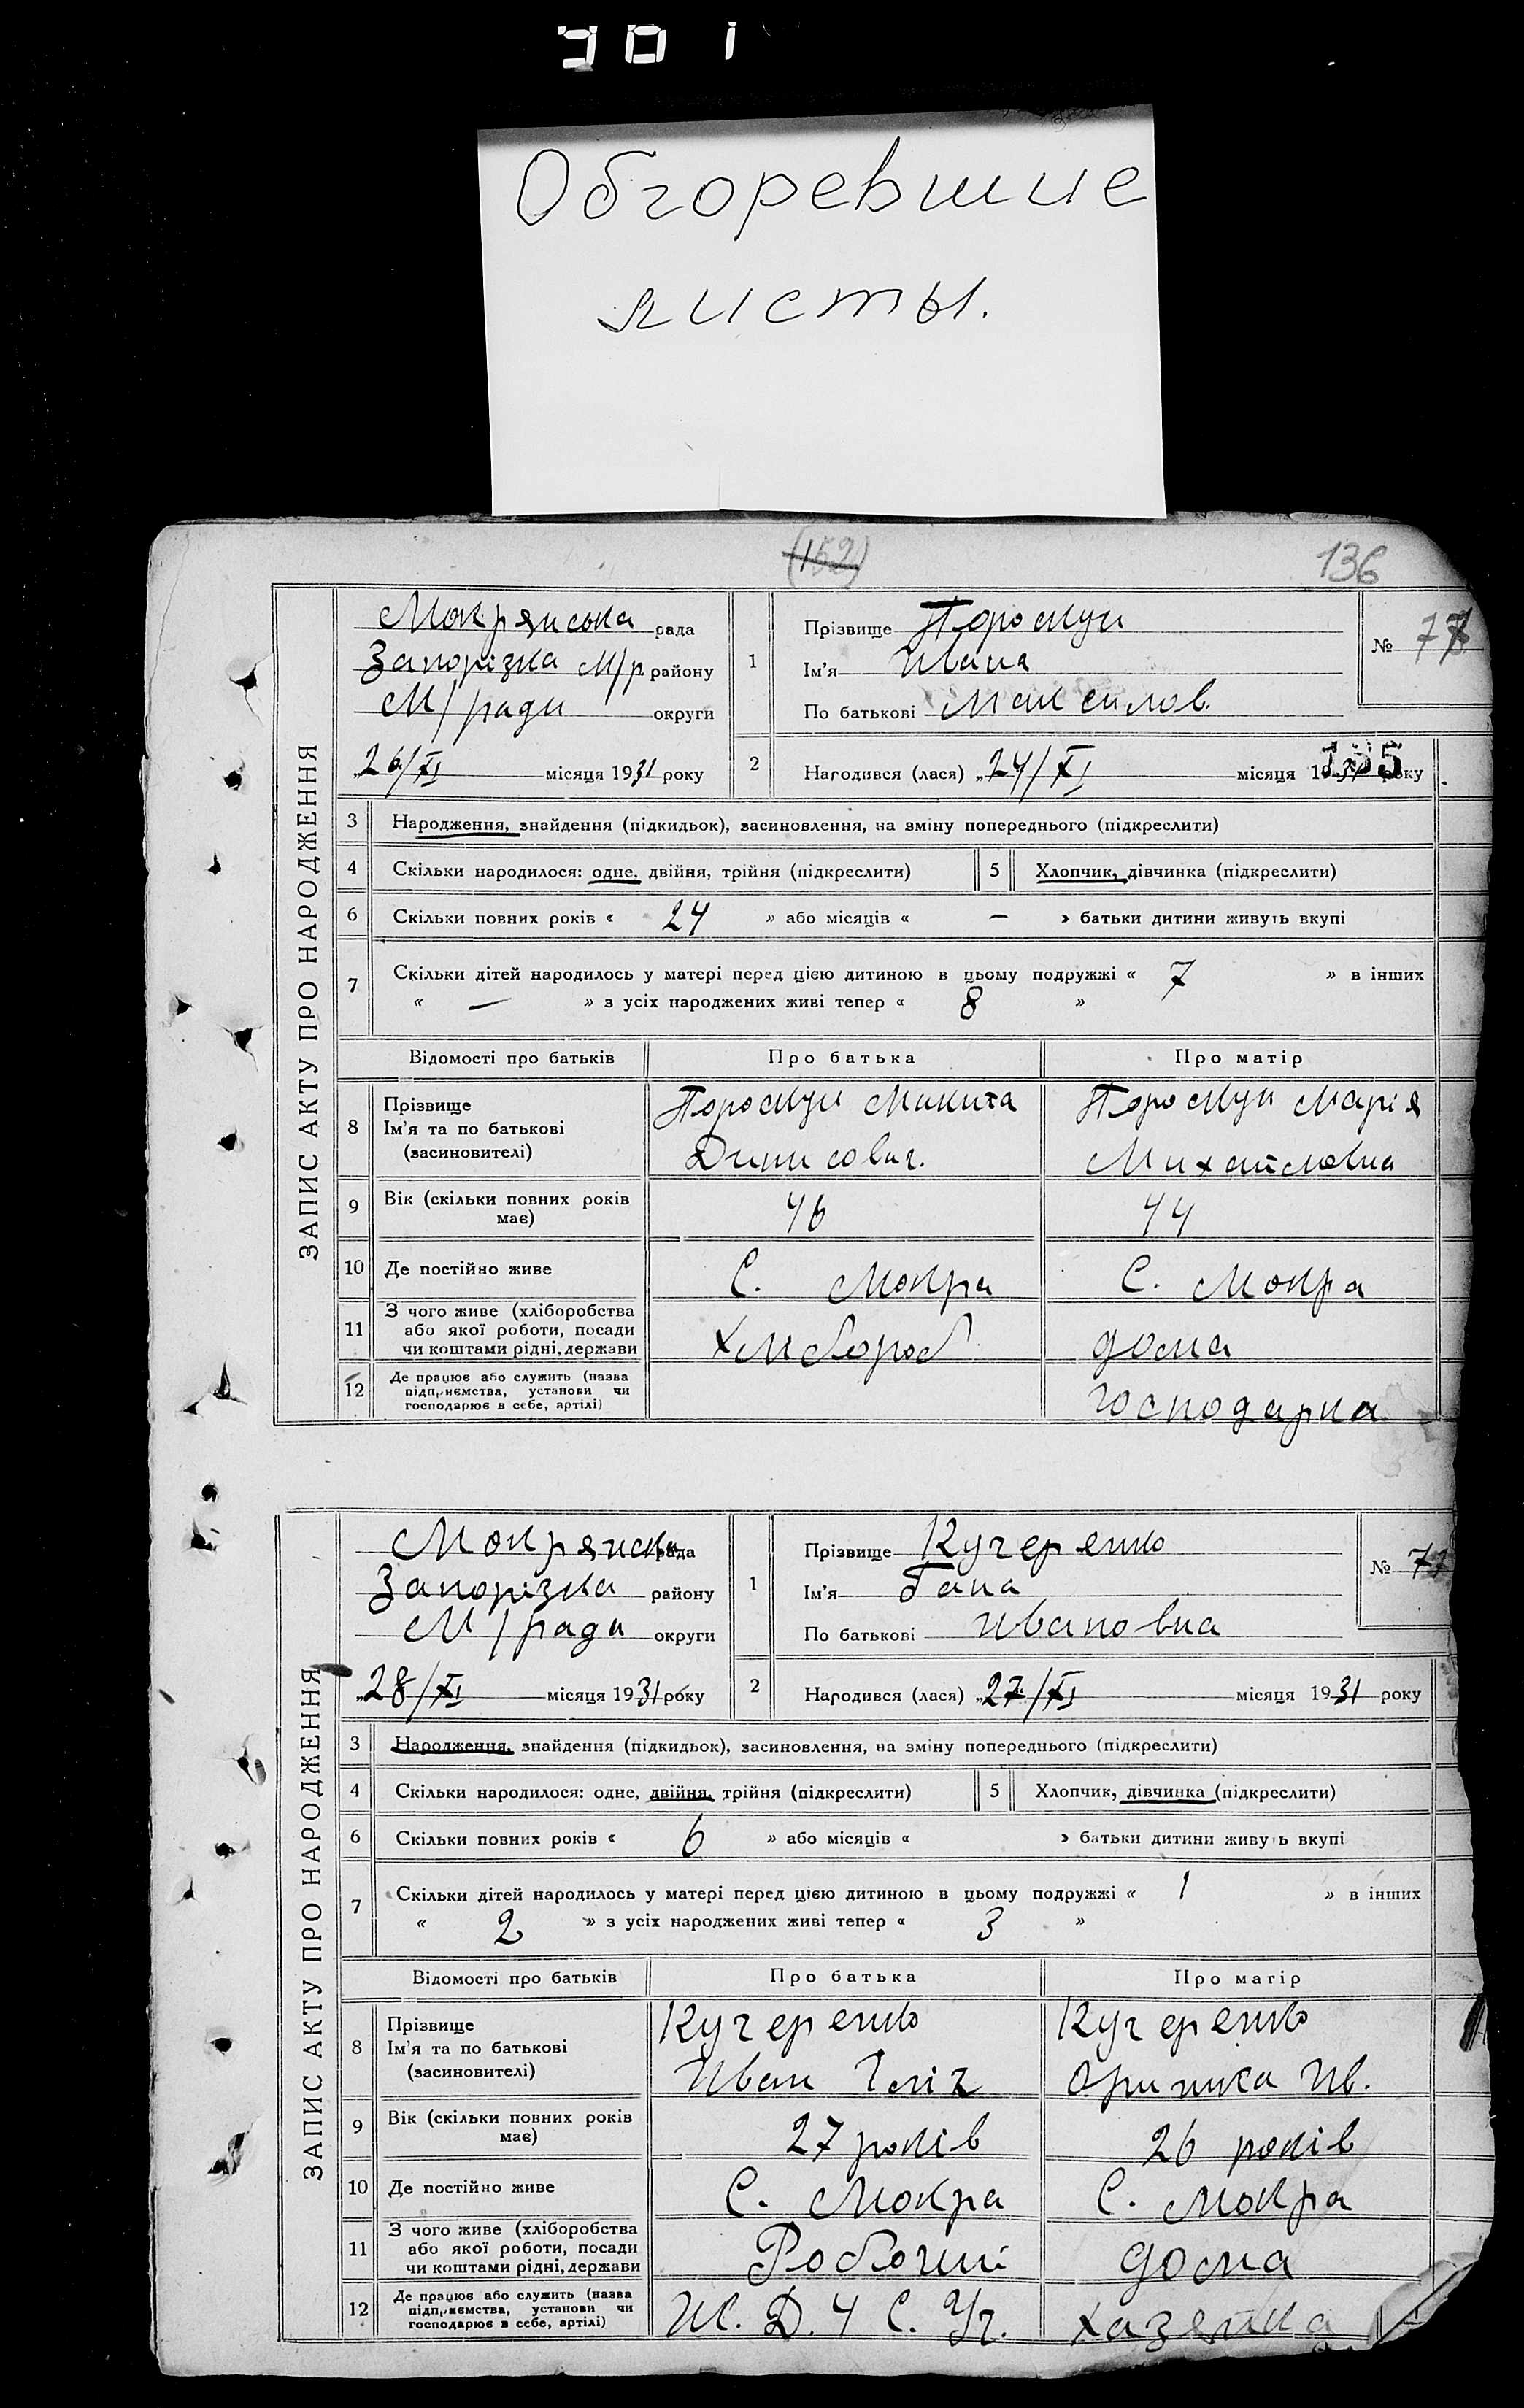 Обгоревшие
листы.
(152)
136
ЗАПИС АКТУ ПРО НАРОДЖЕННЯ
Мокрянська рада
Запорізка М/р району
М/ради округи
26/XI місяця 1931 року
1
Прізвище
Ім'я Ивана
По батькові
№ 77
2
Народився (лася) „24/XI місяця 1931 року
135
3 Народження, знайдення (підкидьок), засиновлення, на зміну попереднього (підкреслити)
4 Скільки народилося: одне, двійня, трійня (підкреслити) 5 Хлопчик, дівчинка (підкреслити)
6 Скільки повних років « 24 » або місяців « — » батьки дитини живуть вкупі
7 Скільки дітей народилось у матері перед цією дитиною в цьому подружжі « 7 » в інших
« — » з усіх народжених живі тепер « 8 »
Відомості про батьків Про батька Про матір
8 Прізвище
Ім'я та по батькові
(засиновителі)
Микита
Марія
Михайловна
9 Вік (скільки повних років
має)
46 44
10 Де постійно живе С. Мокра С. Мокра
11 З чого живе (хліборобства
або якої роботи, посади
чи коштами рідні, держави
Хлібороб дома
12 Де працює або служить (назва
підприємства, установи чи
господарює в себе, артілі)
господарка
ЗАПИС АКТУ ПРО НАРОДЖЕННЯ
Мокрянска рада
Запорізка району
М/ради округи
„28/XI місяця 1931 року
1
Прізвище Кучеренко
Ім'я Гана
По батькові Ивановна
№
2
Народився (лася) „27/XI місяця 1931 року
3 Народження, знайдення (підкидьок), засиновлення, на зміну попереднього (підкреслити)
4 Скільки народилося: одне, двійня, трійня (підкреслити) 5 Хлопчик, дівчинка (підкреслити)
6 Скільки повних років « 6 » або місяців « » батьки дитини живуть вкупі
7 Скільки дітей народилось у матері перед цією дитиною в цьому подружжі « 1 » в інших
« 2 » з усіх народжених живі тепер « 3 »
Відомості про батьків Про батька Про матір
8 Прізвище
Ім'я та по батькові
(засиновителі)
Кучеренко Кучеренко
Иван Ив.
9 Вік (скільки повних років
має)
27 років 26 років
10 Де постійно живе С. Мокра С. Мокра
11 З чого живе (хліборобства
або якої роботи, посади
чи коштами рідні, держави
Робочий дома
12 Де працює або служить (назва
підприємства, установи чи
господарює в себе, артілі)
хазяйка